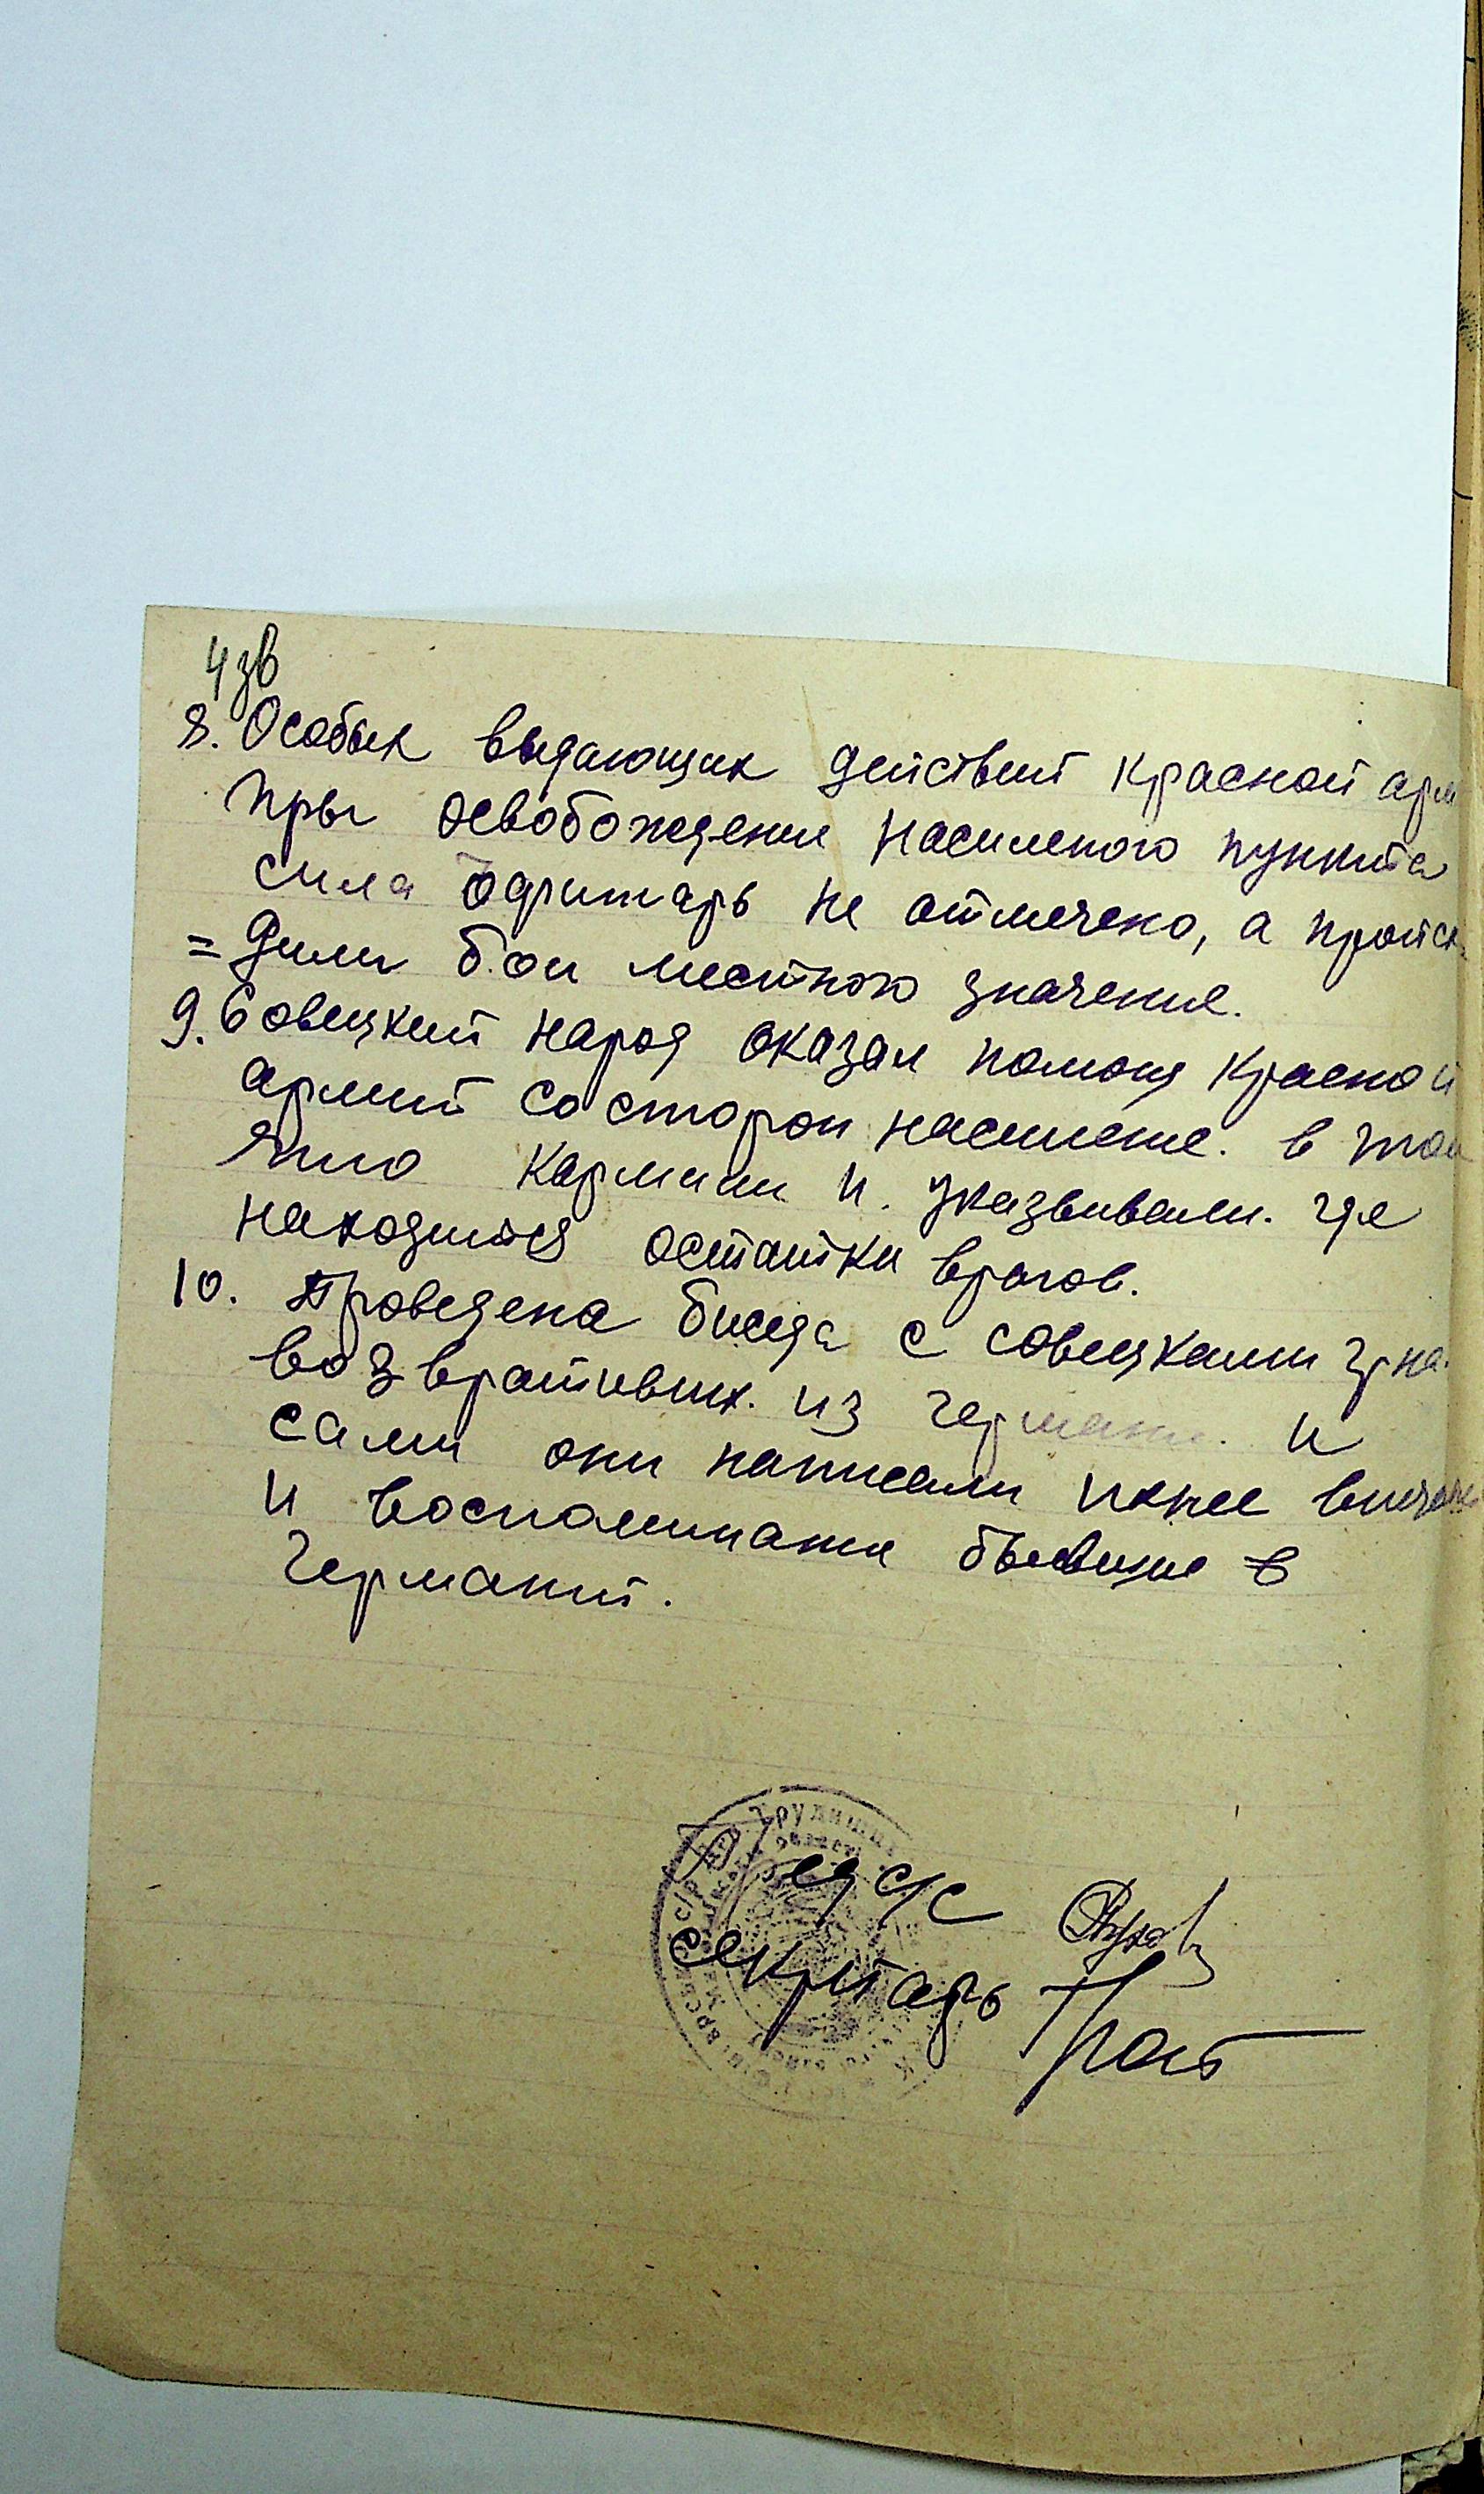 4зв
8. Особых выдающих действий Красной арм
при освобождении населеного пункта
сила Одритарь не отмечено, а происх
= дили бои местного значения.
9. Совецкий народ оказал помощ Красной
армий со сторон население. в том
что кормили и. указывали. где
находится остатки врагов.
10. Проведена биседа с совецкими гр-на.
возвративших. из германи. и
сами они написали
и воспоминани бывшие в
Германий.
Пред с/с
Секритарь